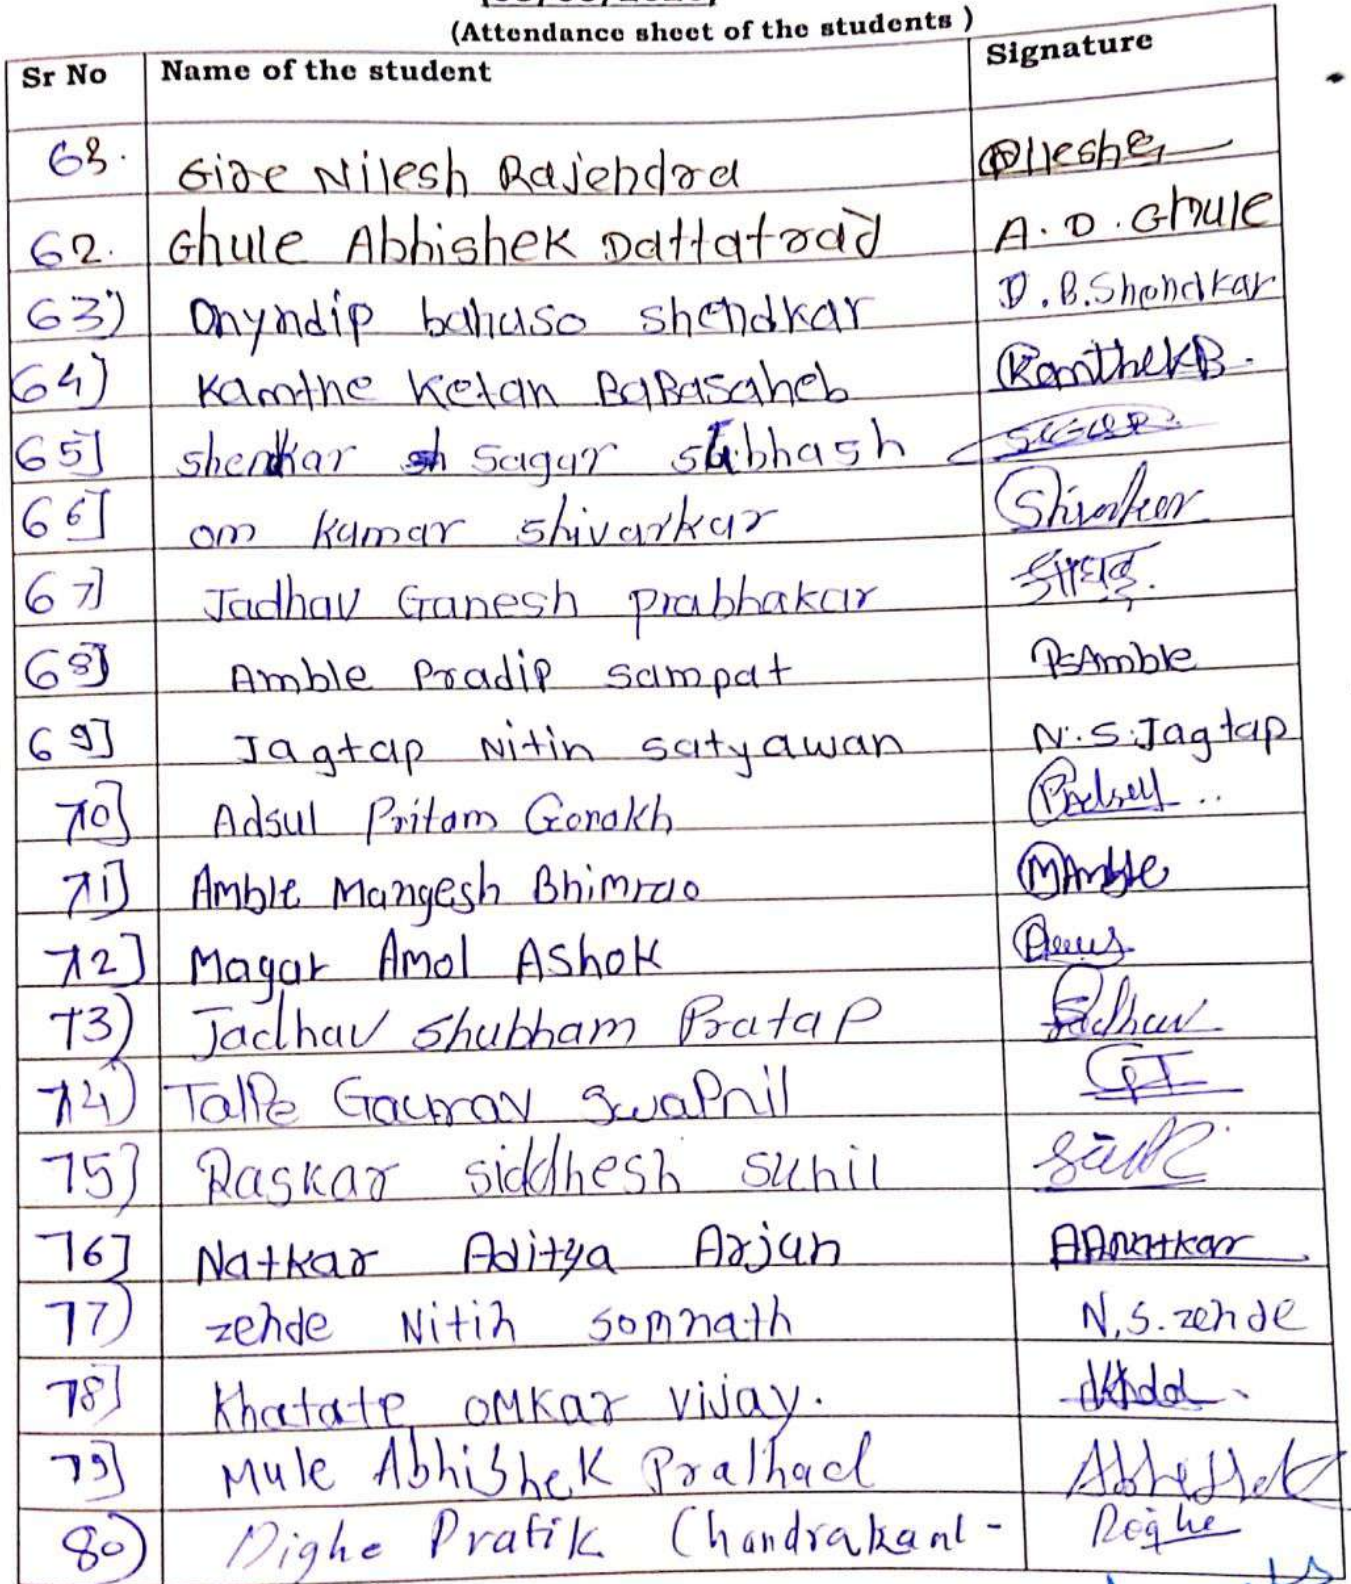 (Attendance sheet of the students )
Sr No Name of the student Signature
63. Gire Nilesh Rajendra
62. Ghule Abhishek Dattatrad A. D. Ghule
63) Dnyndip bahuso shendkar D. B. Shendkar
64) Kamthe Ketan BaBasaheb KamthekB.
65] shenkar sh Sagar subhash
66] om kumar shivarkar Shivarkar
67] Jadhav Ganesh prabhakar जाधव.
68] Amble Pradip sampat PSAmble
69] Jagtap Nitin satyawan N. S. Jagtap
70] Adsul Pritam Gorakh
71] Amble Mangesh Bhimrao MAmble
72] Magar Amol AShok
73) Jadhav Shubham Pratap Jadhav
74) TalPe Gaurav SwaPnil GT
75] Raskar siddhesh sunil
76] Natkar Aditya Arjun AANatkar
77) zende Nitin somnath N. S. zende
78] Khatate OMKar vijay.
79] Mule AbhiShek Pralhad Abhishek
80) Dighe Pratik Chandrakant - Dighe